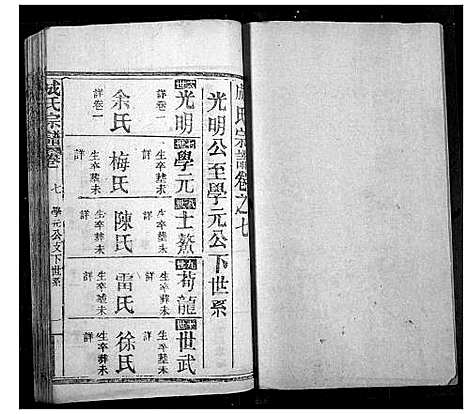 臧氏宗譜卷之七
光明公至學元公下世系
六世 光明 詳卷一
七世 學元 生卒葬未
八世 士鰲 生卒葬未
九世 苟龍 生卒葬未
十世 世武
余氏 詳卷一
梅氏 生卒葬未
陳氏 生卒葬未
雷氏 生卒葬未
徐氏 生卒葬未
氏宗譜卷 七 學元公支下世系 一